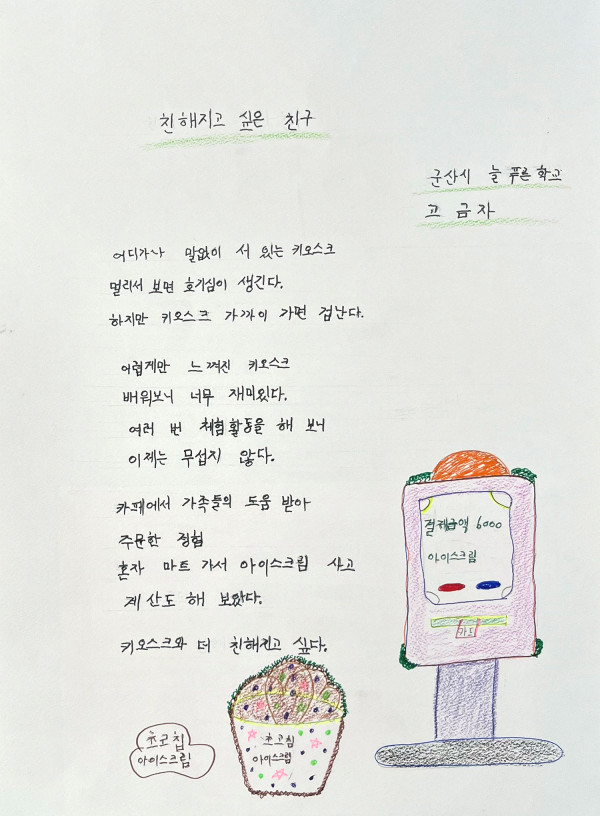 친해지고 싶은 친구
군산시 늘 푸른 학교
고 금자
어디가나 말없이 서 있는 키오스크
멀리서 보면 호기심이 생긴다.
하지만 키오스크 가까이 가면 겁난다.
어렵게만 느껴진 키오스크
배워보니 너무 재미있다.
여러 번 체험활동을 해 보니
이제는 무섭지 않다.
카페에서 가족들의 도움 받아
주문한 경험
혼자 마트 가서 아이스크림 사고
계산도 해 보았다.
키오스크와 더 친해지고 싶다.
결제금액 6000
아이스크림
카드
초코칩
아이스크림
초코칩
아이스크림